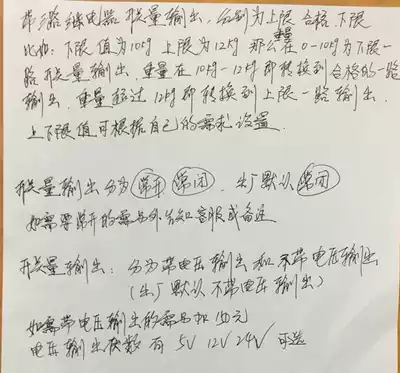 带三路继电器 开关量输出，分别为上限 合格 下限
比如：下限值为10kg 上限为12kg 那么重量在0-10kg为下限一
路开关量输出，重量在10kg-12kg即转换到合格的一路
输出，重量超过12kg即转换到上限一路输出，
上下限值可根据自己的需求设置.
开关量输出分为 常开 常闭，出厂默认 常闭
如需要常开的需另外告知客服或备注
开关量输出：分为带电压输出和不带电压输出
（出厂默认不带电压输出）
如需带电压输出的需另加150元
电压输出 有 5V 12V 24V 可选